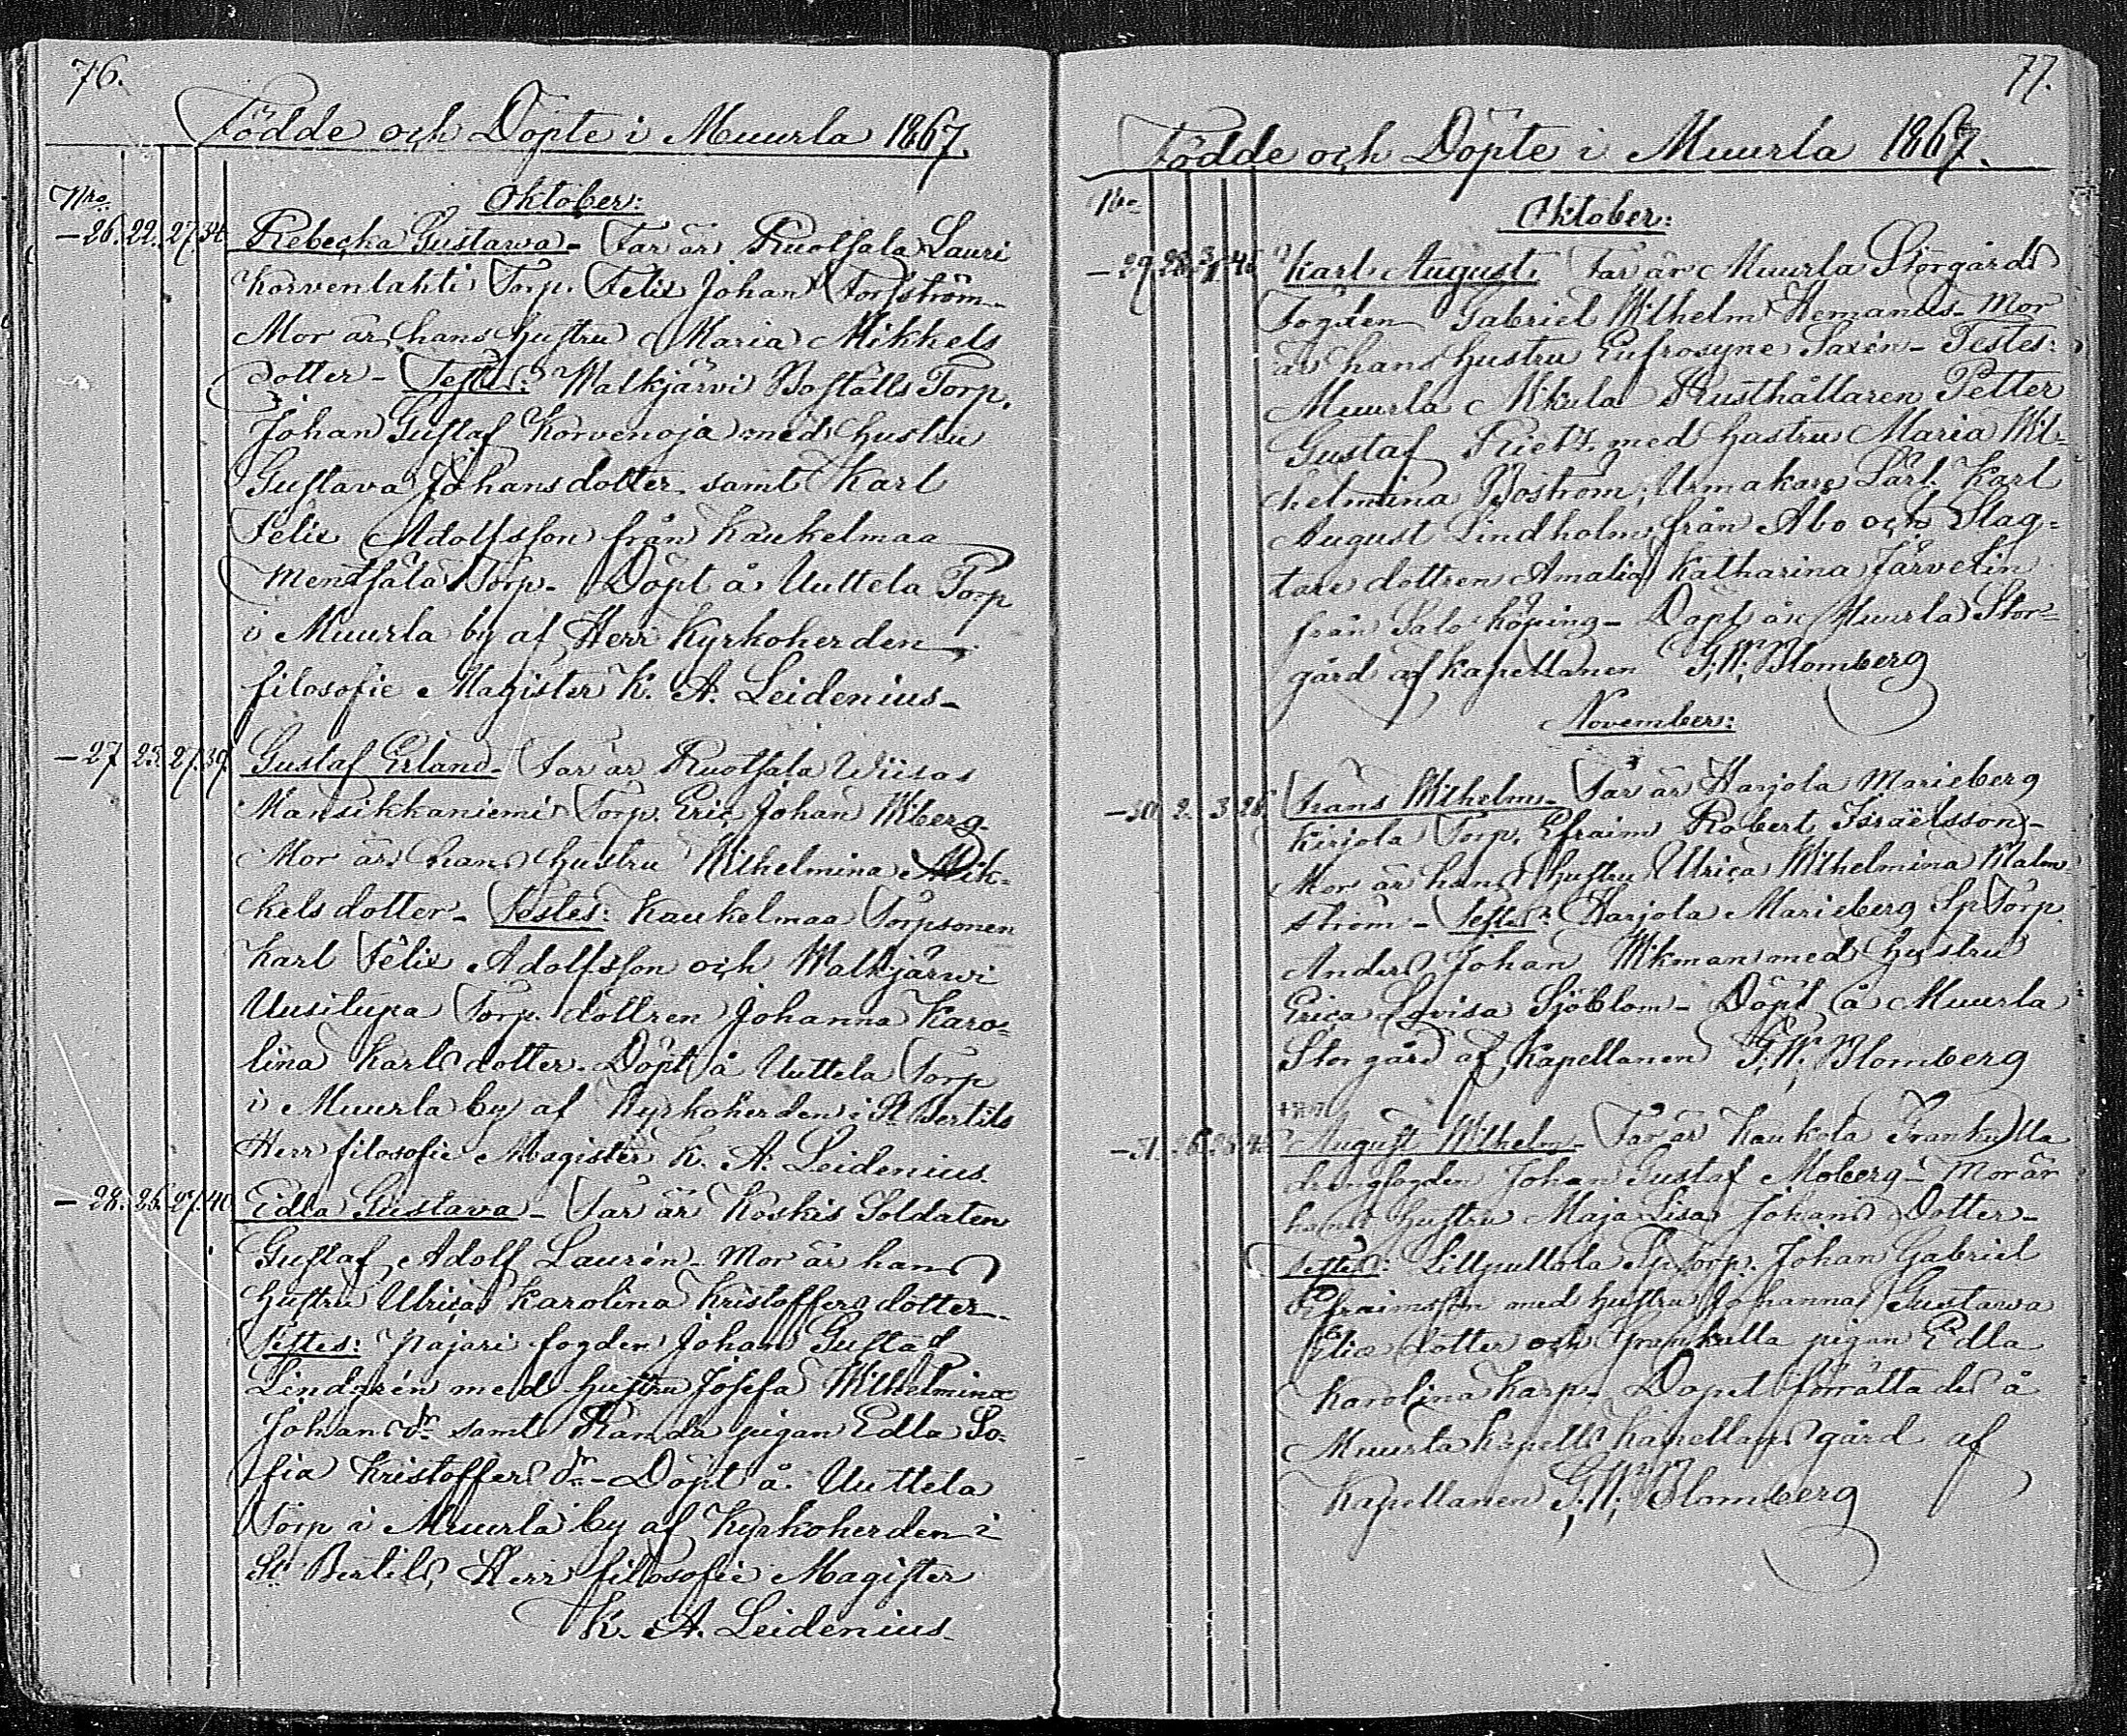 76.
Födde och Döpte i Muurla 1867.
Nro
Oktober:
-26. 22. 27. 34. Rebecka Gustava- Far är Ruotsala Lauri
Korvenlahti Torp. Felix Johan Torsström-
Mor är hans hustru Maria Mikkels
dotter- Testes: Walkjärvi Boställs Torp.
Johan Gustaf Korvenoja med hustru
Gustava Johansdotter samt Karl
Felix Adolfsson från Kaukelmaa
Torp- Döpt å Uuttela Torp
i Muurla by af Herr Kyrkoherden
filosofie Magister K. A. Leidenius-
-27. 25. 27. 39. Gustaf Erland- Far är Ruotsala Wiisas
Mansikkaniemi Torp. Eric Johan Wiberg-
Mor är hans hustru Wilhelmina Mik-
kels dotter- Testes: Kaukelmaa Torpsonen
Karl Felix Adolfsson och Walkjärwi
Uusitupa Torp. dottren Johanna Karo-
lina Karlsdotter- Döpt å Uuttela Torp
i Muurla by af Kyrkoherden i St Bertils
Herr filosofie Magister K. A. Leidenius.
-28. 25. 27. 40. Edla Gustava- Far är Koskis Soldaten
Gustaf Adolf Laurén- Mor är hans
hustru Ulrica Karolina Kristoffersdotter-
Testes: Pajari fogden Johan Gustaf
Lindgrén med hustru Josefa Wilhelmina
Johans dr samt Randa pigan Edla So-
fia Kristoffers dr- Döpt å Uuttela
Torp i Muurla by af Kyrkoherden i
St Bertils, Herr filosofie Magister
K. A. Leidenius-
77.
Födde och Döpte i Muurla 1867.
Nro
Oktober:
-29. 28. 31. Karl August. Far är Muurla Storgårds
Fogden Gabriel Wilhelm Hemanus- Mor
är hans hustru Eufrosyne Saxén- Testes:
Muurla Nikula Rusthållaren Petter
Gustaf Rietz med hustru Maria Wil-
helmina Boström, Urmakare Lärl. Karl
August Lindholm från Abo och Slag-
tare dottren Amalia Katharina Järvelin
från Salo köping- Döpt å Muurla Stor-
gård af Kapellanen G. W. Blomberg
November:
-30. 2. 3. 28. Frans Wilhelm- Far är Harjola Marieberg
Kirjola Torp. Efraim Robert Israëlsson-
Mor är hans hustru Ulrica Wilhelmina Malm-
ström- Testes: Harjola Marieberg Sp Torp.
Anders Johan Wikman med hustru
Erica Lovisa Sjöblom- Döpt å Muurla
Storgård af Kapellanen G. W. Blomberg
-31. 26. 28. August Wilhelm- Far är Kaukola Frankulla
drengfogden Johan Gustaf Moberg- Mor är
hans hustru Maja Lisa Johans Dotter-
Testes: Lillpullola Sp Torp. Johan Gabriel
Efraimsson med hustru Johanna Gustava
Elias dotter och Frankulla pigan Edla
Karolina Karp- Dopet förrättades å
Muurla Kapells Kapellans gård af
Kapellanen G. W. Blomberg